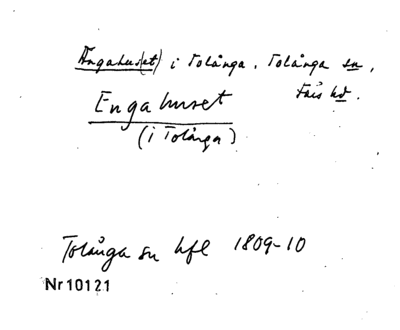 Ängahus(et) i Tolånga. Tolånga sn,
Färs hd.
Engahuset
(i Tolånga)
Tolånga sn hfl 1809-10
Nr 10121